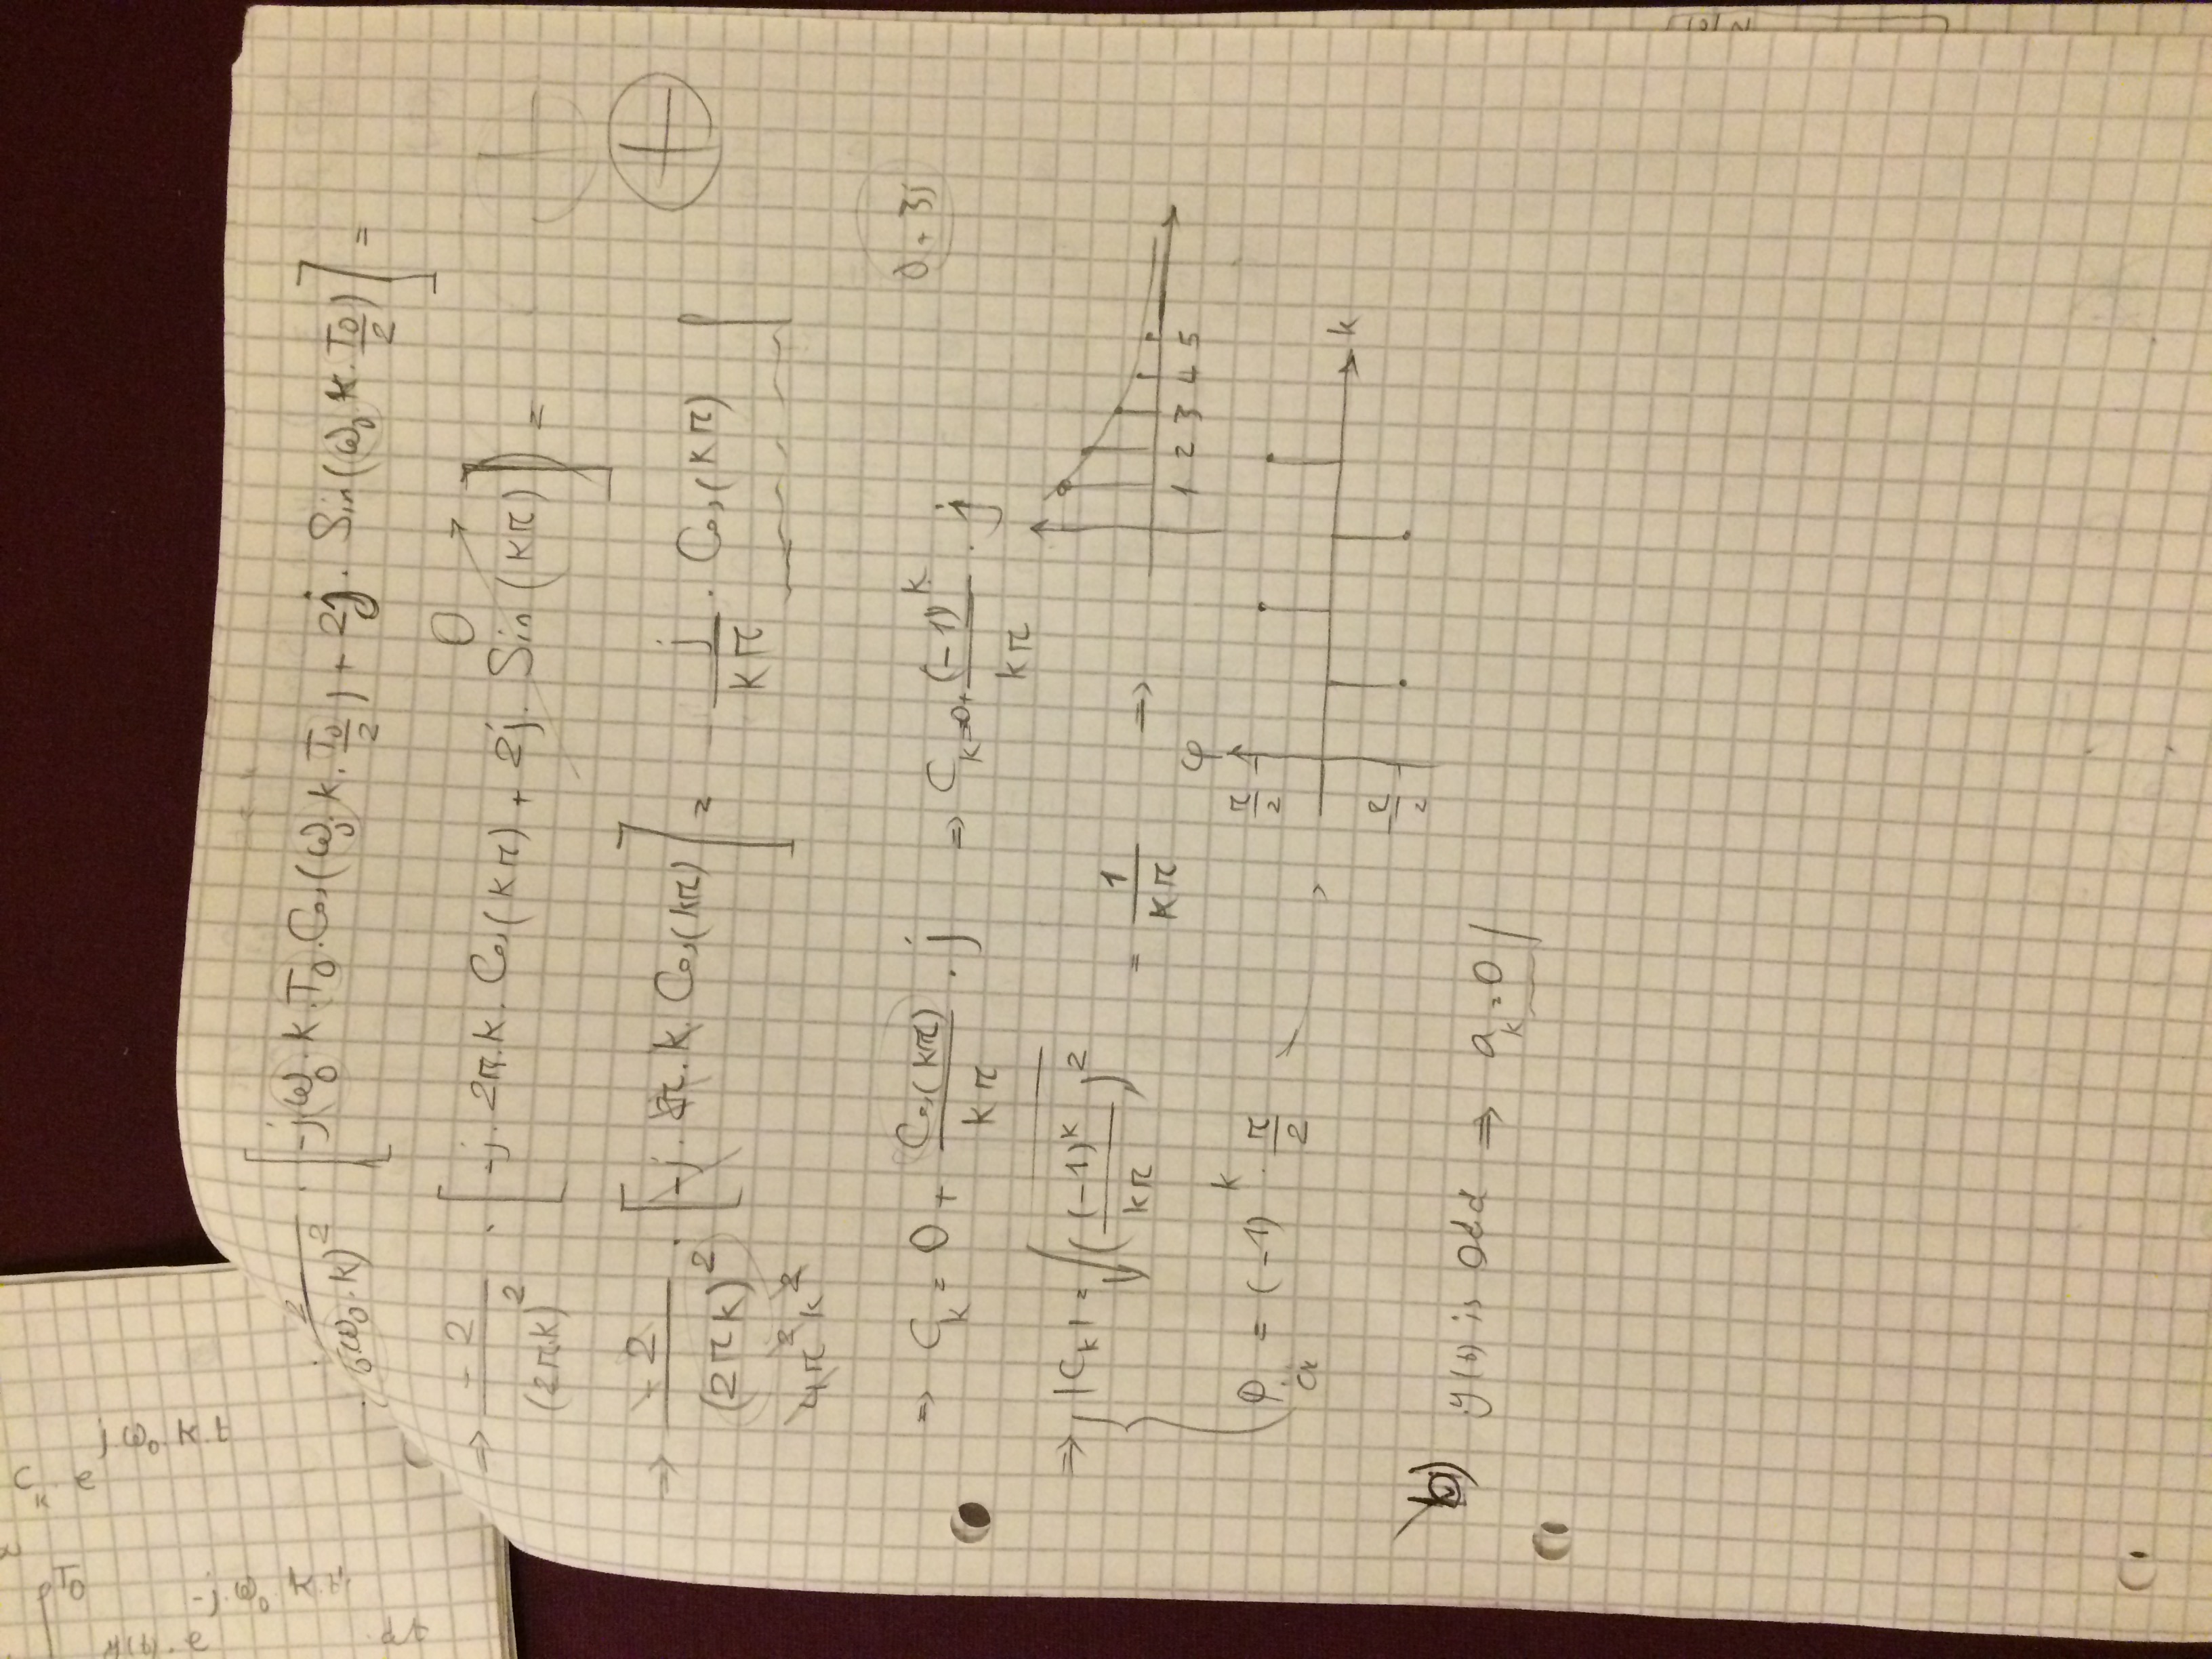 C_k e^{jω₀.k.t}
T₀
-j.ω₀.k.t.
dt
2/(ω₀.k)² . [-j.ω₀.k.T₀.Cos(ω₀.k.T₀/2) + 2j. Sin(ω₀.k.T₀/2)] =
=> -2/(2π.k)² . [-j.2π.k.Cos(kπ) + 2j. Sin(kπ)] = 0
=> -2/(2πk)² . [-j.2π.k.Cos(kπ)] = - j/kπ . Cos(kπ)
4π²k²
=> C_k = 0 + Cos(kπ)/kπ . j => C_k = 0 + (-1)^k/kπ . j
0 - 3j
=> |C_k| = √((-1)^k/kπ)² = 1/kπ =>
1 2 3 4 5
φ = (-1)^k . π/2
φ
π/2
-π/2
k
b) y(t) is Odd => a_k = 0